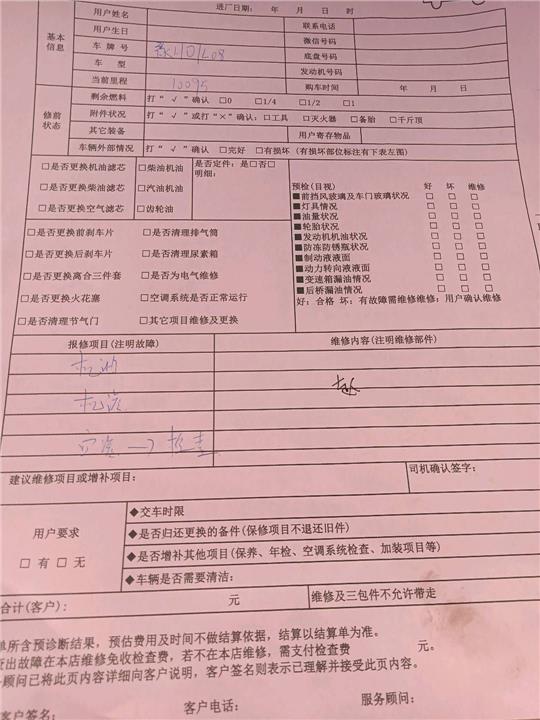 进厂日期： 年 月 日 时
基本信息
用户姓名 联系电话
用户生日 微信号码
车牌号 底盘号码
车型 发动机号码
当前里程 10095 购车时间 年 月 日
修前状态
剩余燃料 打“√”确认 □0 □1/4 □1/2 □1
附件状况 打“√”或打“×”确认：□工具 □灭火器 □备胎 □千斤顶
其它装备 用户寄存物品
车辆外部情况 打“√”确认 □完好 □有损坏（有损坏部位标注有下表左图）
□是否更换机油滤芯 □柴油机油
□是否更换柴油滤芯 □汽油机油
□是否更换空气滤芯 □齿轮油
是否定件：是□否□
明细：
□是否更换前刹车片 □是否清理排气筒
□是否更换后刹车片 □是否清理尿素箱
□是否更换离合三件套 □是否为电气维修
□是否更换火花塞 □空调系统是否正常运行
□是否清理节气门 □其它项目维修及更换
预检(目视) 好 坏 维修
■前挡风玻璃及车门玻璃状况 □ □ □
■灯具情况 □ □ □
■油量状况 □ □ □
■轮胎状况 □ □ □
■发动机机油状况 □ □ □
■防冻防锈瓶状况 □ □ □
■制动液液面 □ □ □
■动力转向液液面 □ □ □
■变速箱漏油情况 □ □ □
■后桥漏油情况 □ □ □
好：合格 坏：有故障需维修维修：用户确认维修
报修项目(注明故障) 维修内容(注明维修部件)
机油
机滤
空滤 → 检查
建议维修项目或增补项目： 司机确认签字：
用户要求
□ 有 □ 无
◆交车时限
◆是否归还更换的备件(保修项目不退还旧件)
◆是否增补其他项目(保养、年检、空调系统检查、加装项目等)
◆车辆是否需要清洁：
合计(客户)： 元 维修及三包件不允许带走
单所含预诊断结果，预估费用及时间不做结算依据，结算以结算单为准。
查出故障在本店维修免收检查费，若不在本店维修，需支付检查费 元。
顾问已将此页内容详细向客户说明，客户签名则表示已理解并接受此页内容。
客户签名： 客户电话： 服务顾问：